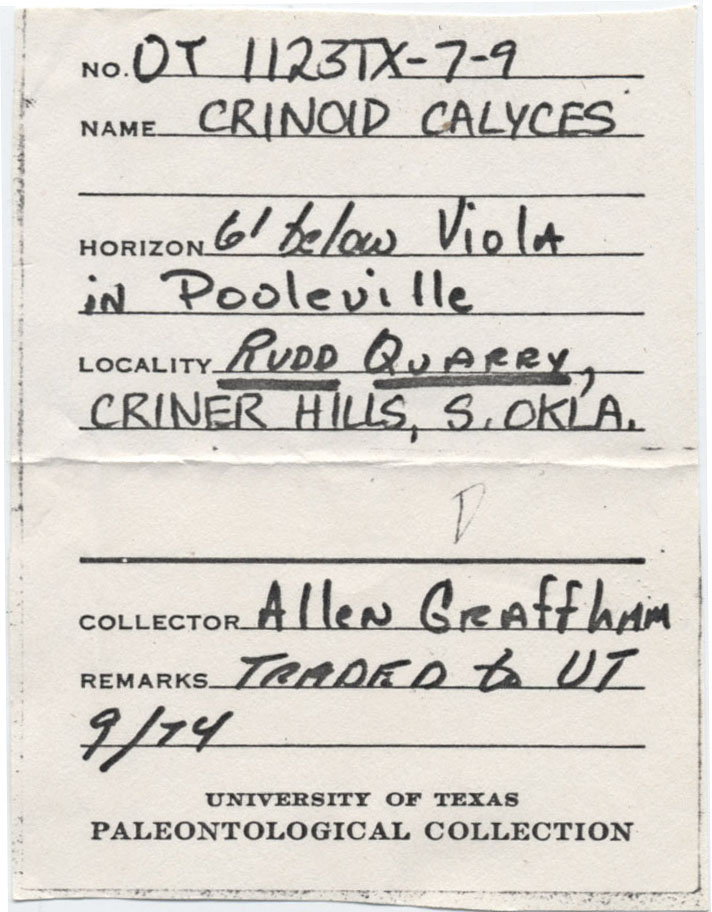 NO. OT 1123TX-7-9
NAME CRINOID CALYCES
HORIZON 6' below Viola
in Pooleville
LOCALITY RUDD QUARRY,
CRINER HILLS, S. OKLA.
D
COLLECTOR Allen Graffham
REMARKS TRADED to UT
9/74
UNIVERSITY OF TEXAS
PALEONTOLOGICAL COLLECTION